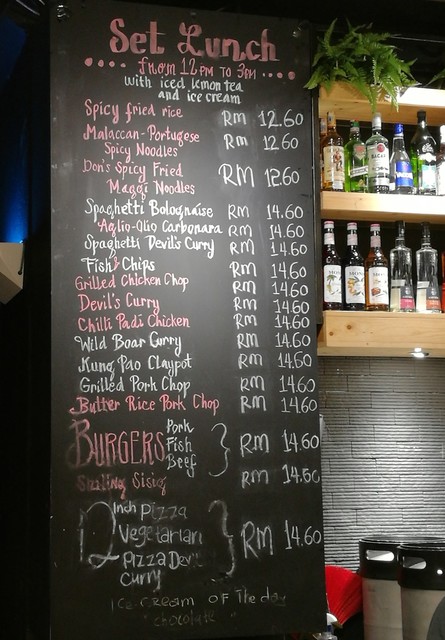 Set Lunch
from 12 PM to 3PM
with iced lemon tea
and ice cream
Spicy fried rice RM 12.60
Malaccan-Portugese
Spicy Noodles RM 12.60
Don's Spicy Fried
Maggi Noodles RM 12.60
Spaghetti Bolognaise RM 14.60
Aglio-Olio Carbonara RM 14.60
Spaghetti Devil's Curry RM 14.60
Fish & Chips RM 14.60
Grilled Chicken Chop RM 14.60
Devil's Curry RM 14.60
Chilli Padi Chicken RM 14.60
Wild Boar Curry RM 14.60
Kung Pao Claypot RM 14.60
Grilled Pork Chop RM 14.60
Butter Rice Pork Chop RM 14.60
BURGERS Pork Fish Beef RM 14.60
Sizzling Sisig RM 14.60
12 inch pizza
Vegetarian
Pizza Devil
Curry
RM 14.60
Ice-cream of The day
"chocolate"